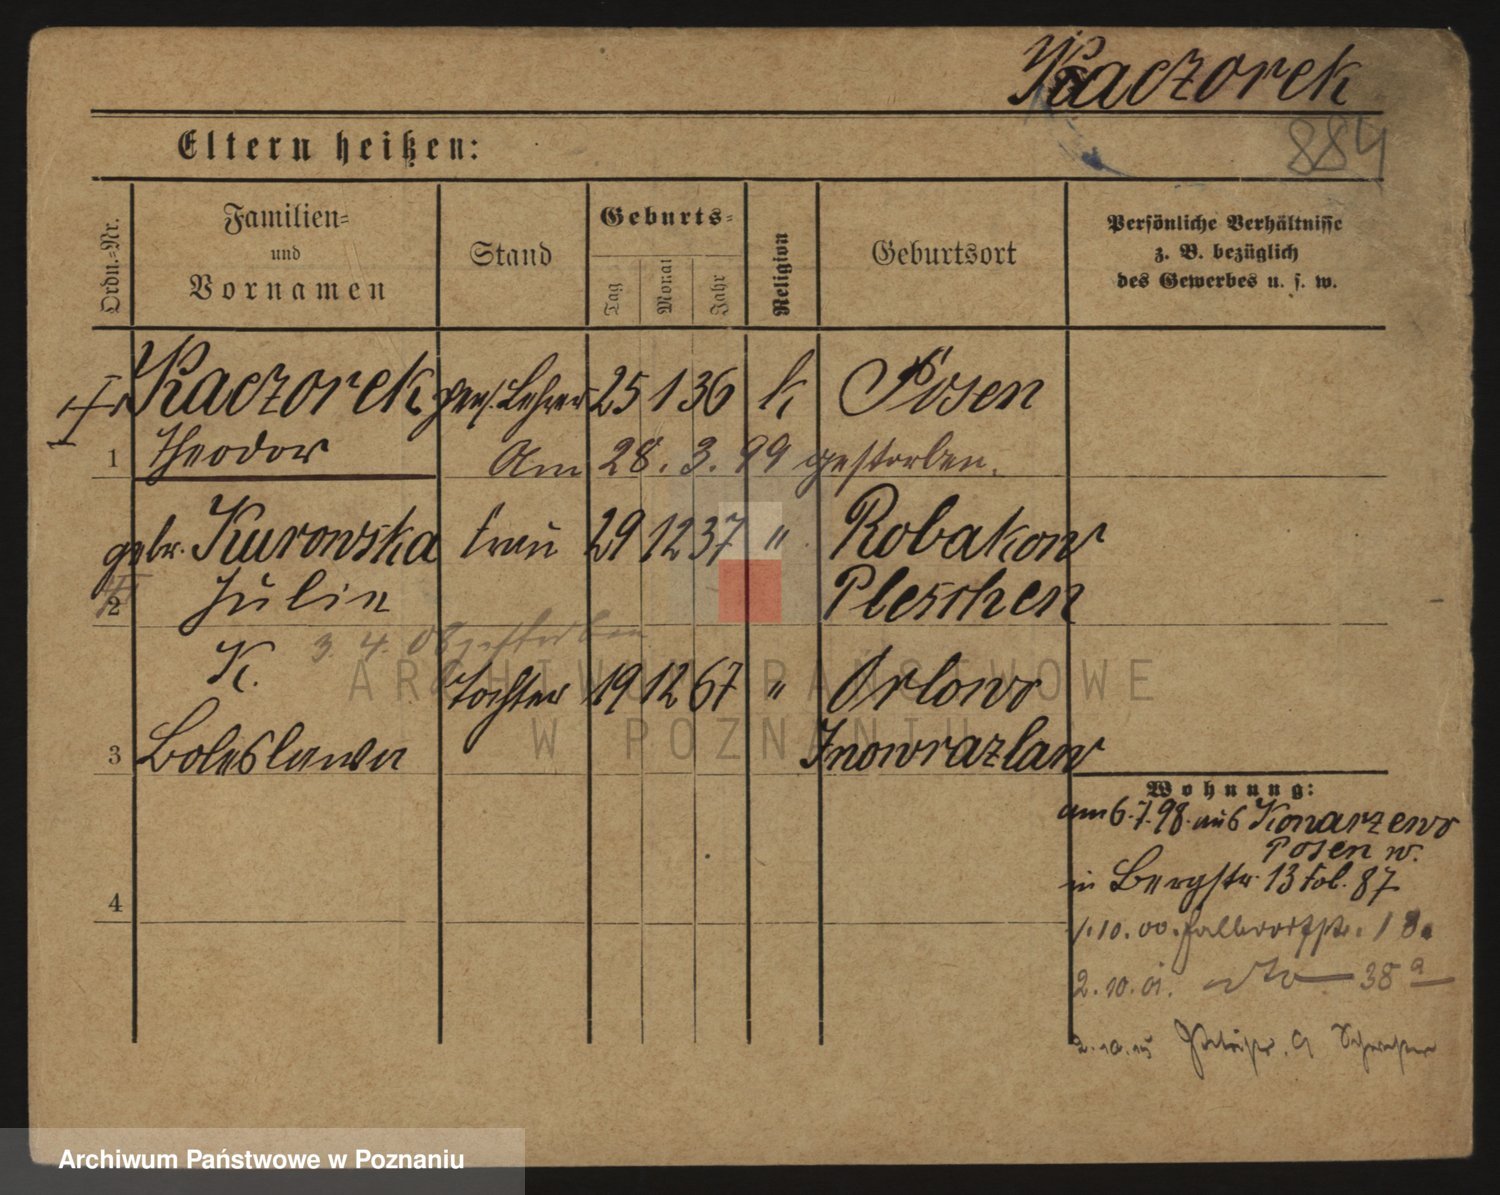 Kaczorek
884
Eltern heißen:
Ordn.-Nr.
Familien-
und
Vornamen
Stand
Geburts-
Tag
Monat
Jahr
Religion
Geburtsort
Persönliche Verhältnisse
z. B. bezüglich
des Gewerbes u. s. w.
Kaczorek pens. Lehrer 25 1 36 k Posen
1 Theodor Am 28. 3. 99 gestorben.
gebr. Kurowska Frau 29 12 37 " Robakow
2 Julie Pleschen
3. 4. 08 gestorben
K. Tochter 19 12 67 " Orlowo
3 Boleslawa Inowrazlaw
Wohnung:
am 6.7.98. aus Konarzewo
Posen W.
in Bergstr. 13 Fol. 87
4
1.10.00. Halbdorfstr. 18.
2.10.01. dto 38a
ARCHIWUM PAŃSTWOWE
W POZNANIU
Archiwum Państwowe w Poznaniu